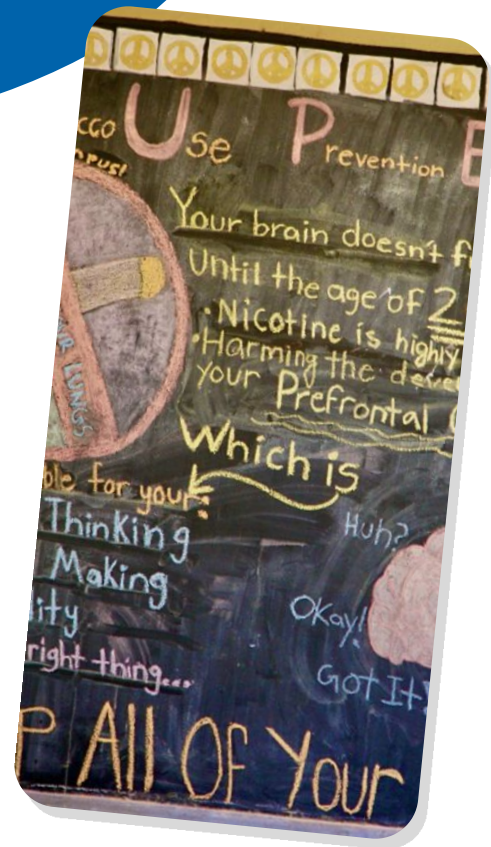 cco Use Prevention E
mpus!
Your brain doesn't f
Until the age of 2
• Nicotine is highly
• Harming the deve
your Prefrontal C
Which is
UR LUNGS
ble for your:
Thinking
Making
lity
right thing...
Huh?
Okay!
Got It!
P All Of Your